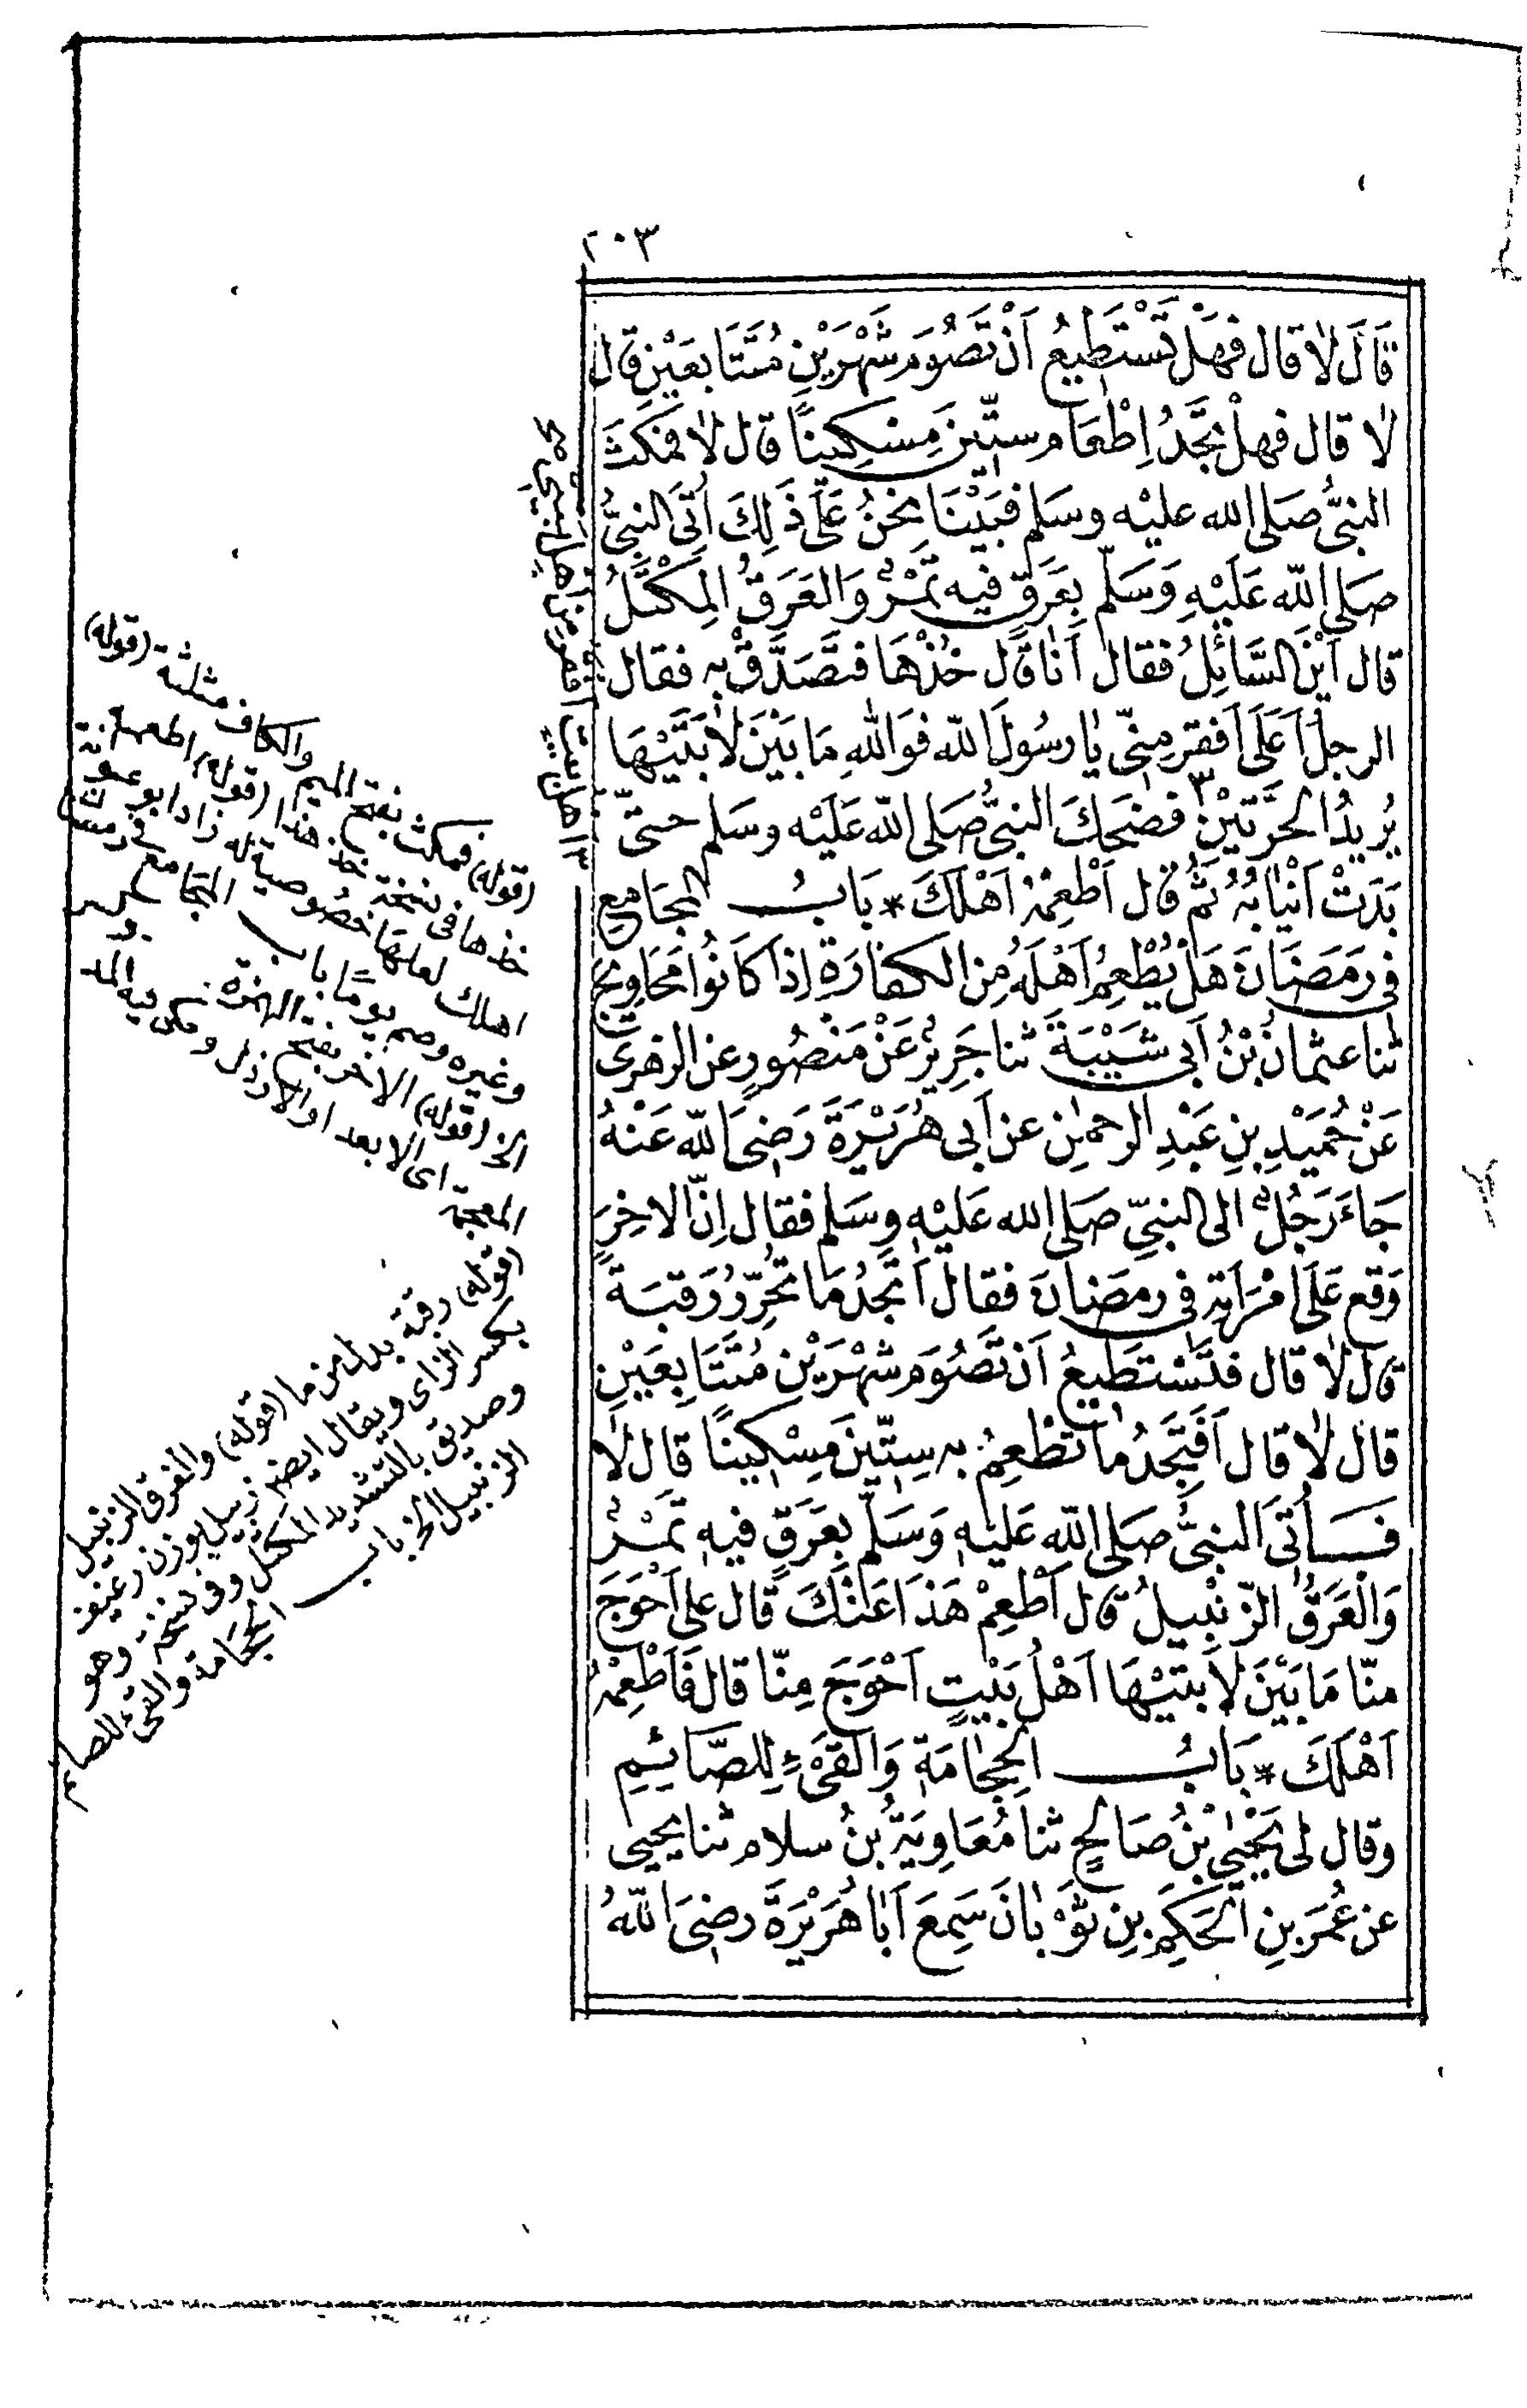 ٢٠٣
قَالَ لَا قال فهَلْ تَسْتَطِيعُ اَنْ تَصُومَ شَهْرَيْنِ مُتَتَابِعَيْنِ قال
لَا قال فهلْ تَجَّدُ اِطْعَام ستّينَ مِسْكِينًا قال لا فمَكثَ
النبىُّ صَلى الله عليْه وسَلم فبَيْنَا نحْنُ عَلَى ذَلِكَ اُتِىَ النبِىُّ
صَلى الله عَلَيْهِ وَسَلّم بِعَرَقٍ فيه تَمْرٌ وَالعَرَقُ المِكْتَلُ
قال اَيْنَ السَّائِلُ فقال اَنا قال خُذْهَا فتَصَدَّقْ بِه فقال
الرجلُ اَعَلَى اَفقرِ مِنّى يا رسُولَ الله فوَاللهِ مَا بَيْنَ لَابَتَيْهَا
يُرِيدُ الحَرَّتَيْنِ ٣ فضَحِكَ النبىُّ صَلى الله عَلَيْه وسَلم حتىّ
بَدَتْ اَنْيَابُهُ ثُمَّ قال اَطْعِمْهُ اَهْلَكَ * بَابُ المجَامِعِ
فى رمَضَانَ هَلْ يُطْعِمُ اَهْلَهُ مِنَ الكفارَةِ اِذا كَانُوا مَحَاوِيجَ
ثنا عثمانُ بْنُ اَبى شَيْبَةَ ثنا جَرِيرٌ عَنْ مَنْصُورٍ عن الزهرىّ
عَنْ حُمَيْدِ بنِ عَبْدِ الرحمٰنِ عن اَبى هُرَيْرَةَ رَضِىَ الله عَنْهُ
جَاءَ رَجُلٌ الى النبِىِّ صَلى الله عَليْهِ وسَلم فقال اِنّ الاخِرَ
وَقع عَلَى امْرَاَتِهِ فى رمَضانَ فقال اَتَجدُ مَا تُحَرِّرُ رَقبَةً
قال لا قال فتَسْتَطِيعُ اَنْ تَصُومَ شهْرَيْنِ مُتَتَابِعَيْنِ
قال لا قال اَفَتَجدُ ما تُطْعِمُ بِه سِتّينَ مِسْكِينًا قال لَا
فَاُتِىَ النبىُّ صَلى الله عَليْه وَسَلّم بِعَرَقٍ فيه تَمْرٌ
وَالْعَرَقُ الزّنْبِيلُ قال اَطْعِمْ هَذَا عَنْكَ قال على اَحْوَجَ
منّا مَا بَيْنَ لابتَيْهَا اَهْلُ بَيْتٍ اَحْوَجَ مِنّا قال فَاَطْعِمْهُ
اَهْلَكَ * بَابُ الحِجَامَةِ وَالْقَىْءِ لِلصَّائِمِ
وقال لى يَحْيى بْنُ صَالحٍ ثنا مُعَاوِيَةُ بنُ سلام ثنا يحيى
عن عُمَرَ بنِ الحَكَمِ بنِ ثَوْبانَ سَمِعَ اَبَا هُرَيْرَةَ رضِىَ اللهُ
٣ اهل بيت افقر من اهل بيتى
(قوله) فمكث بفتح الميم والكاف مثلثة (قوله)
خذها فى نسخة خذ هذا (قوله) اطعمه
اهلك لعلها خصوصية له زاد ابو عوانة
وغيره وصم يومًا باب المجامع فى رمضان
الخ (قوله) الاخر بفتح الهمزة
المعجمة اى الابعد او الارذل وحكى فيه المد
(قوله) رقبة بدل من ما (قوله) والفرق الزنبيل
بكسر الزاى ويقال ايضا زبيل بوزن رغيف
وصديق بالتشديد المكتل وفى نسخة وهو
الزنبيل الخ باب الحجامة والقىء للصائم